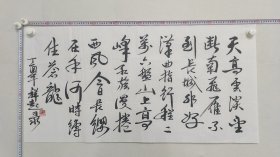 天高雲淡望
断南飛雁不
到长城非好
漢屈指行程二
萬六盤山上高
峰红旗漫捲
西風今日长缨
在手何時縛
住蒼龍